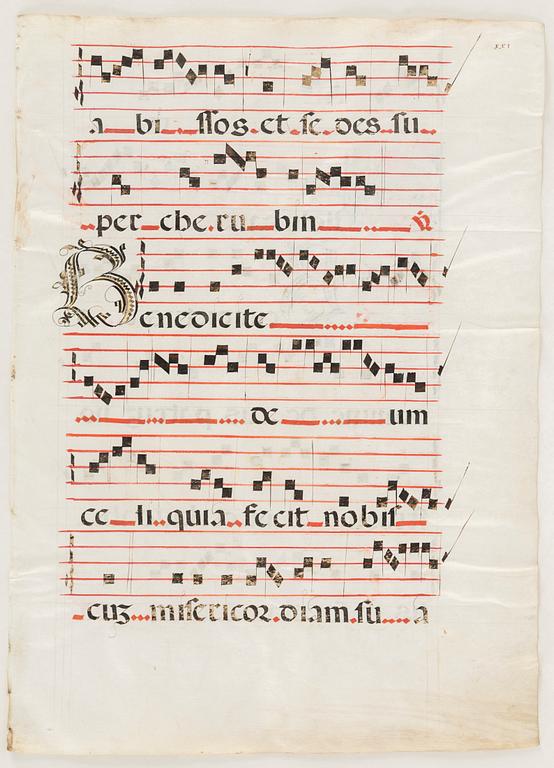 xxi
a bi ssos. et se des su
per che. ru bin ℟
Benedicite
de um
ce li. quia. fe cit nobis
cuz misericor. diam. su a